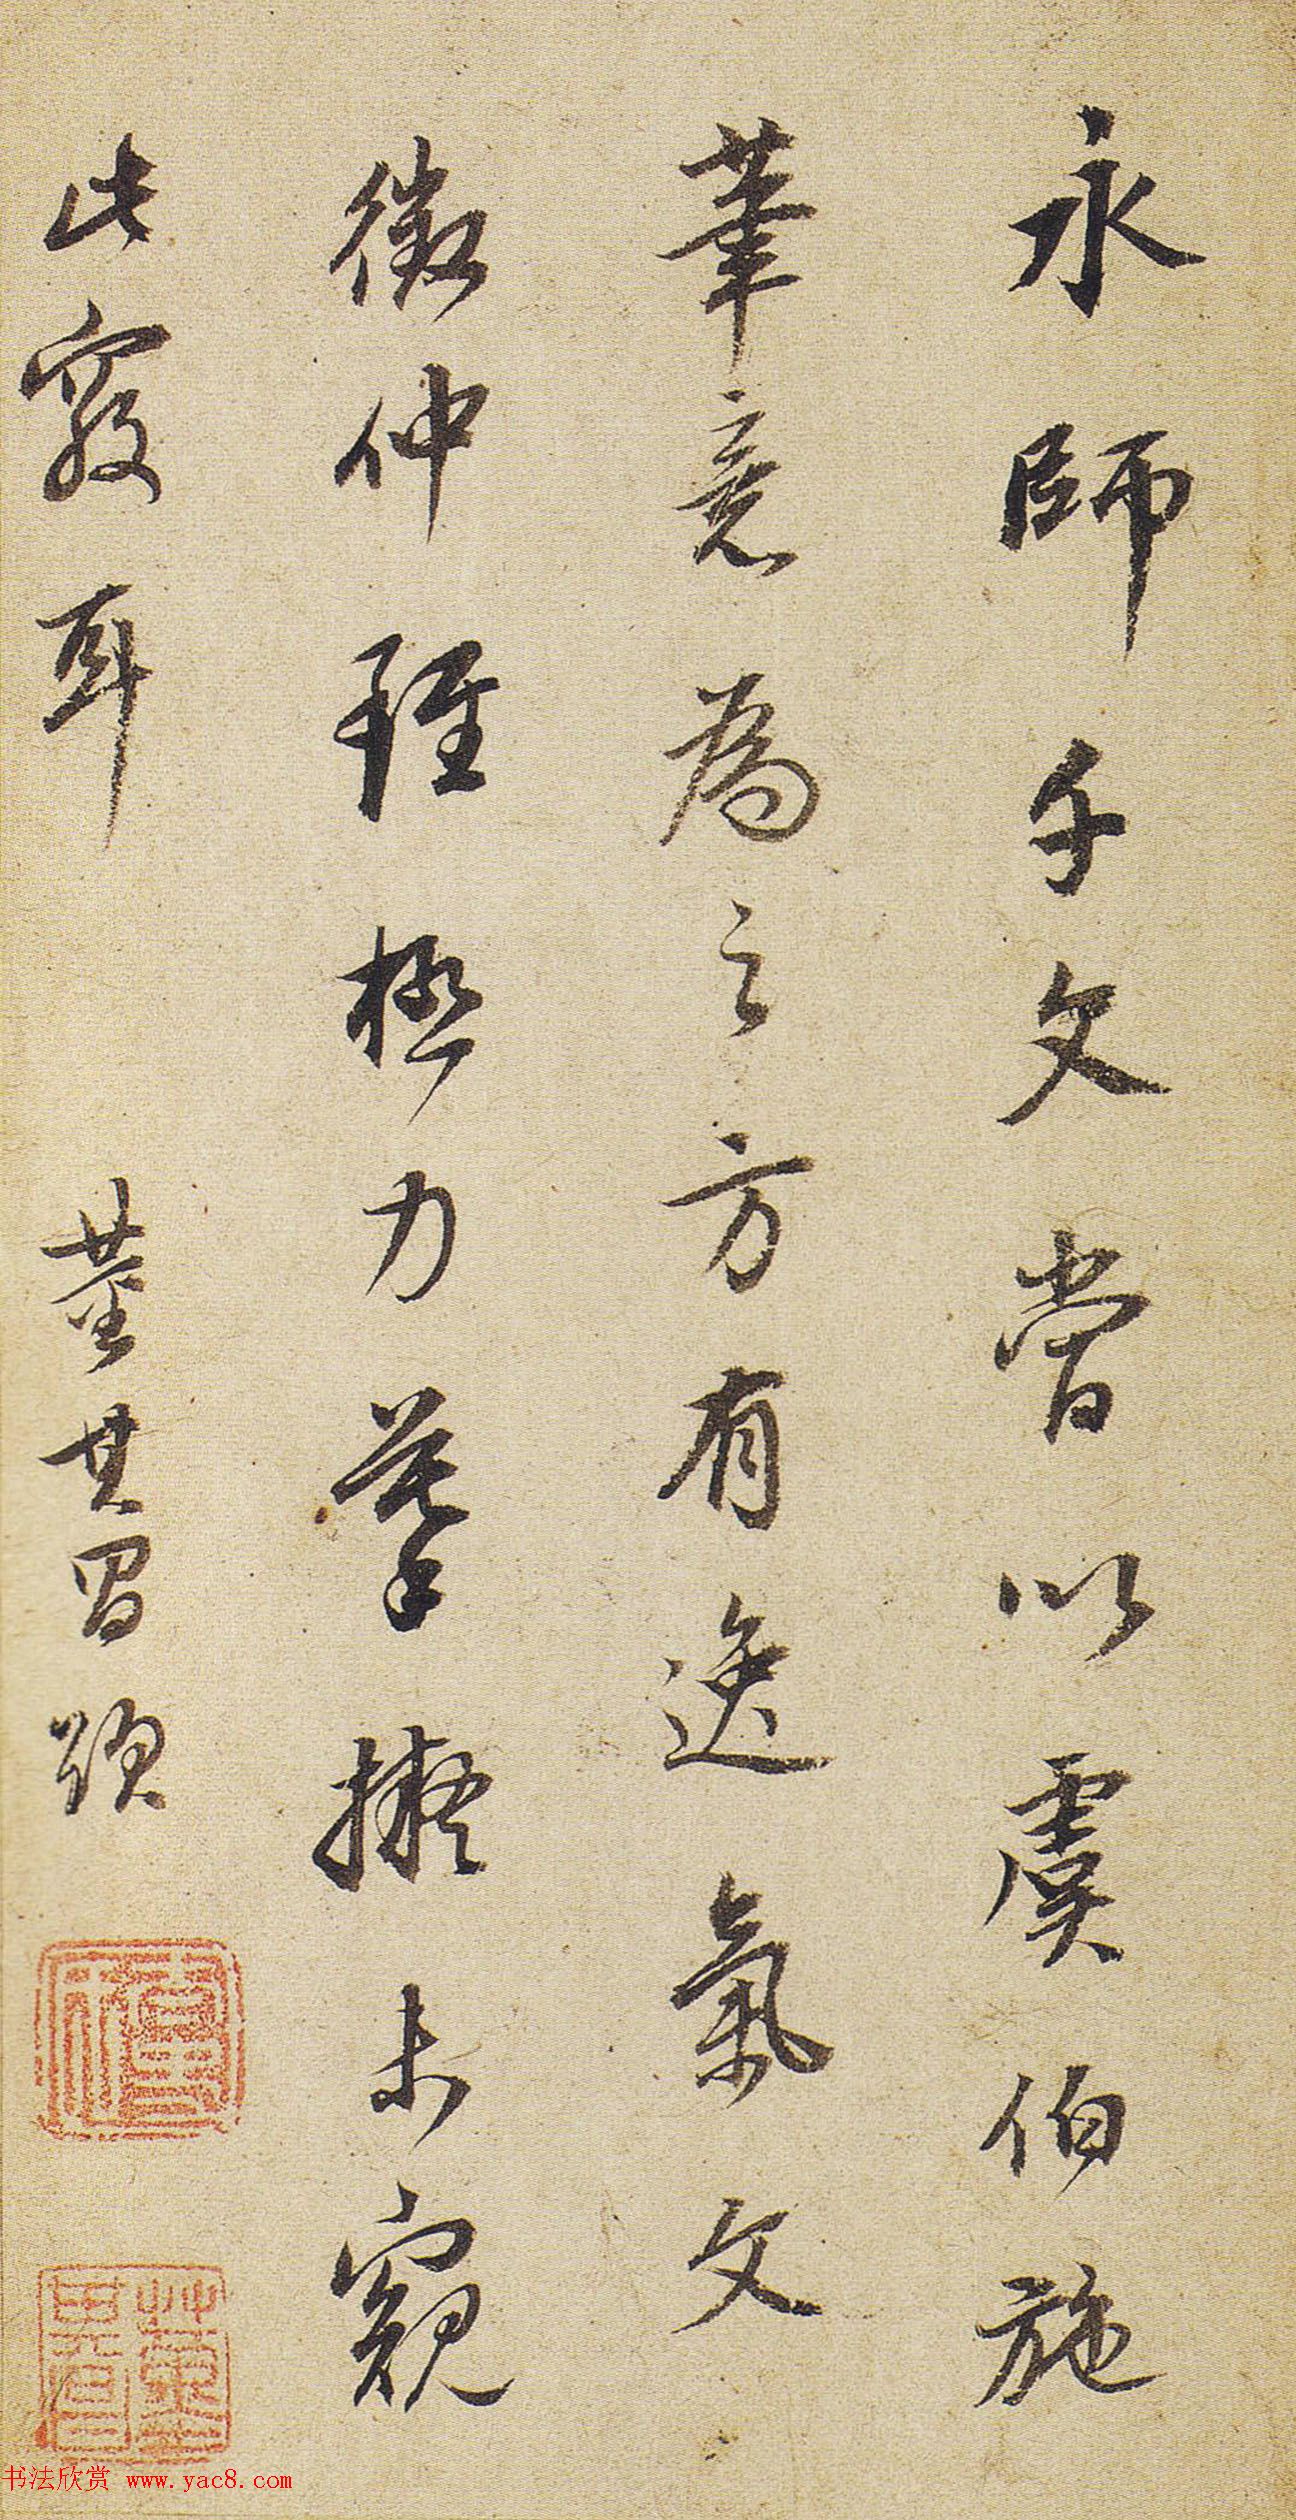 永師千文嘗以虞伯施
筆意為之方有逸氣文
徵仲雖極力摹擬未窺
此竅耳
董其昌題
書法欣赏 www.yac8.com